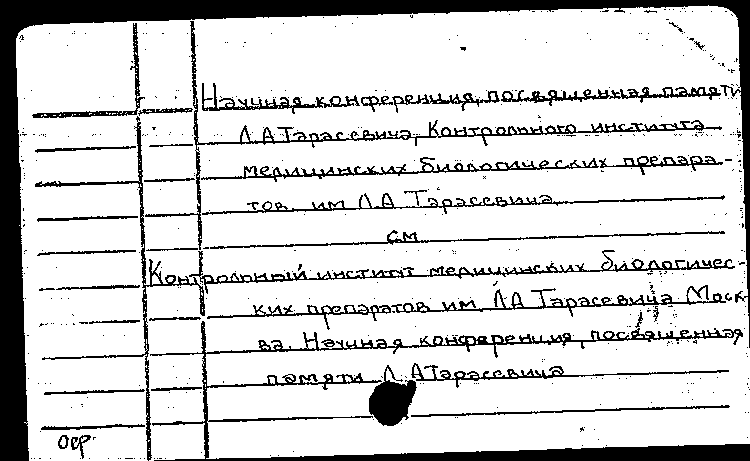 Научная конференция, посвященная памяти
Л.А Тарасевича, Контрольного института
медицинских биологических препара-
тов им Л А Тарасевича
см
Контрольный институт медицинских биологичес-
ких препаратов им. Л А Тарасевича (Моск-
ва. Научная конференция, посвященная
памяти Л. А Тарасевича